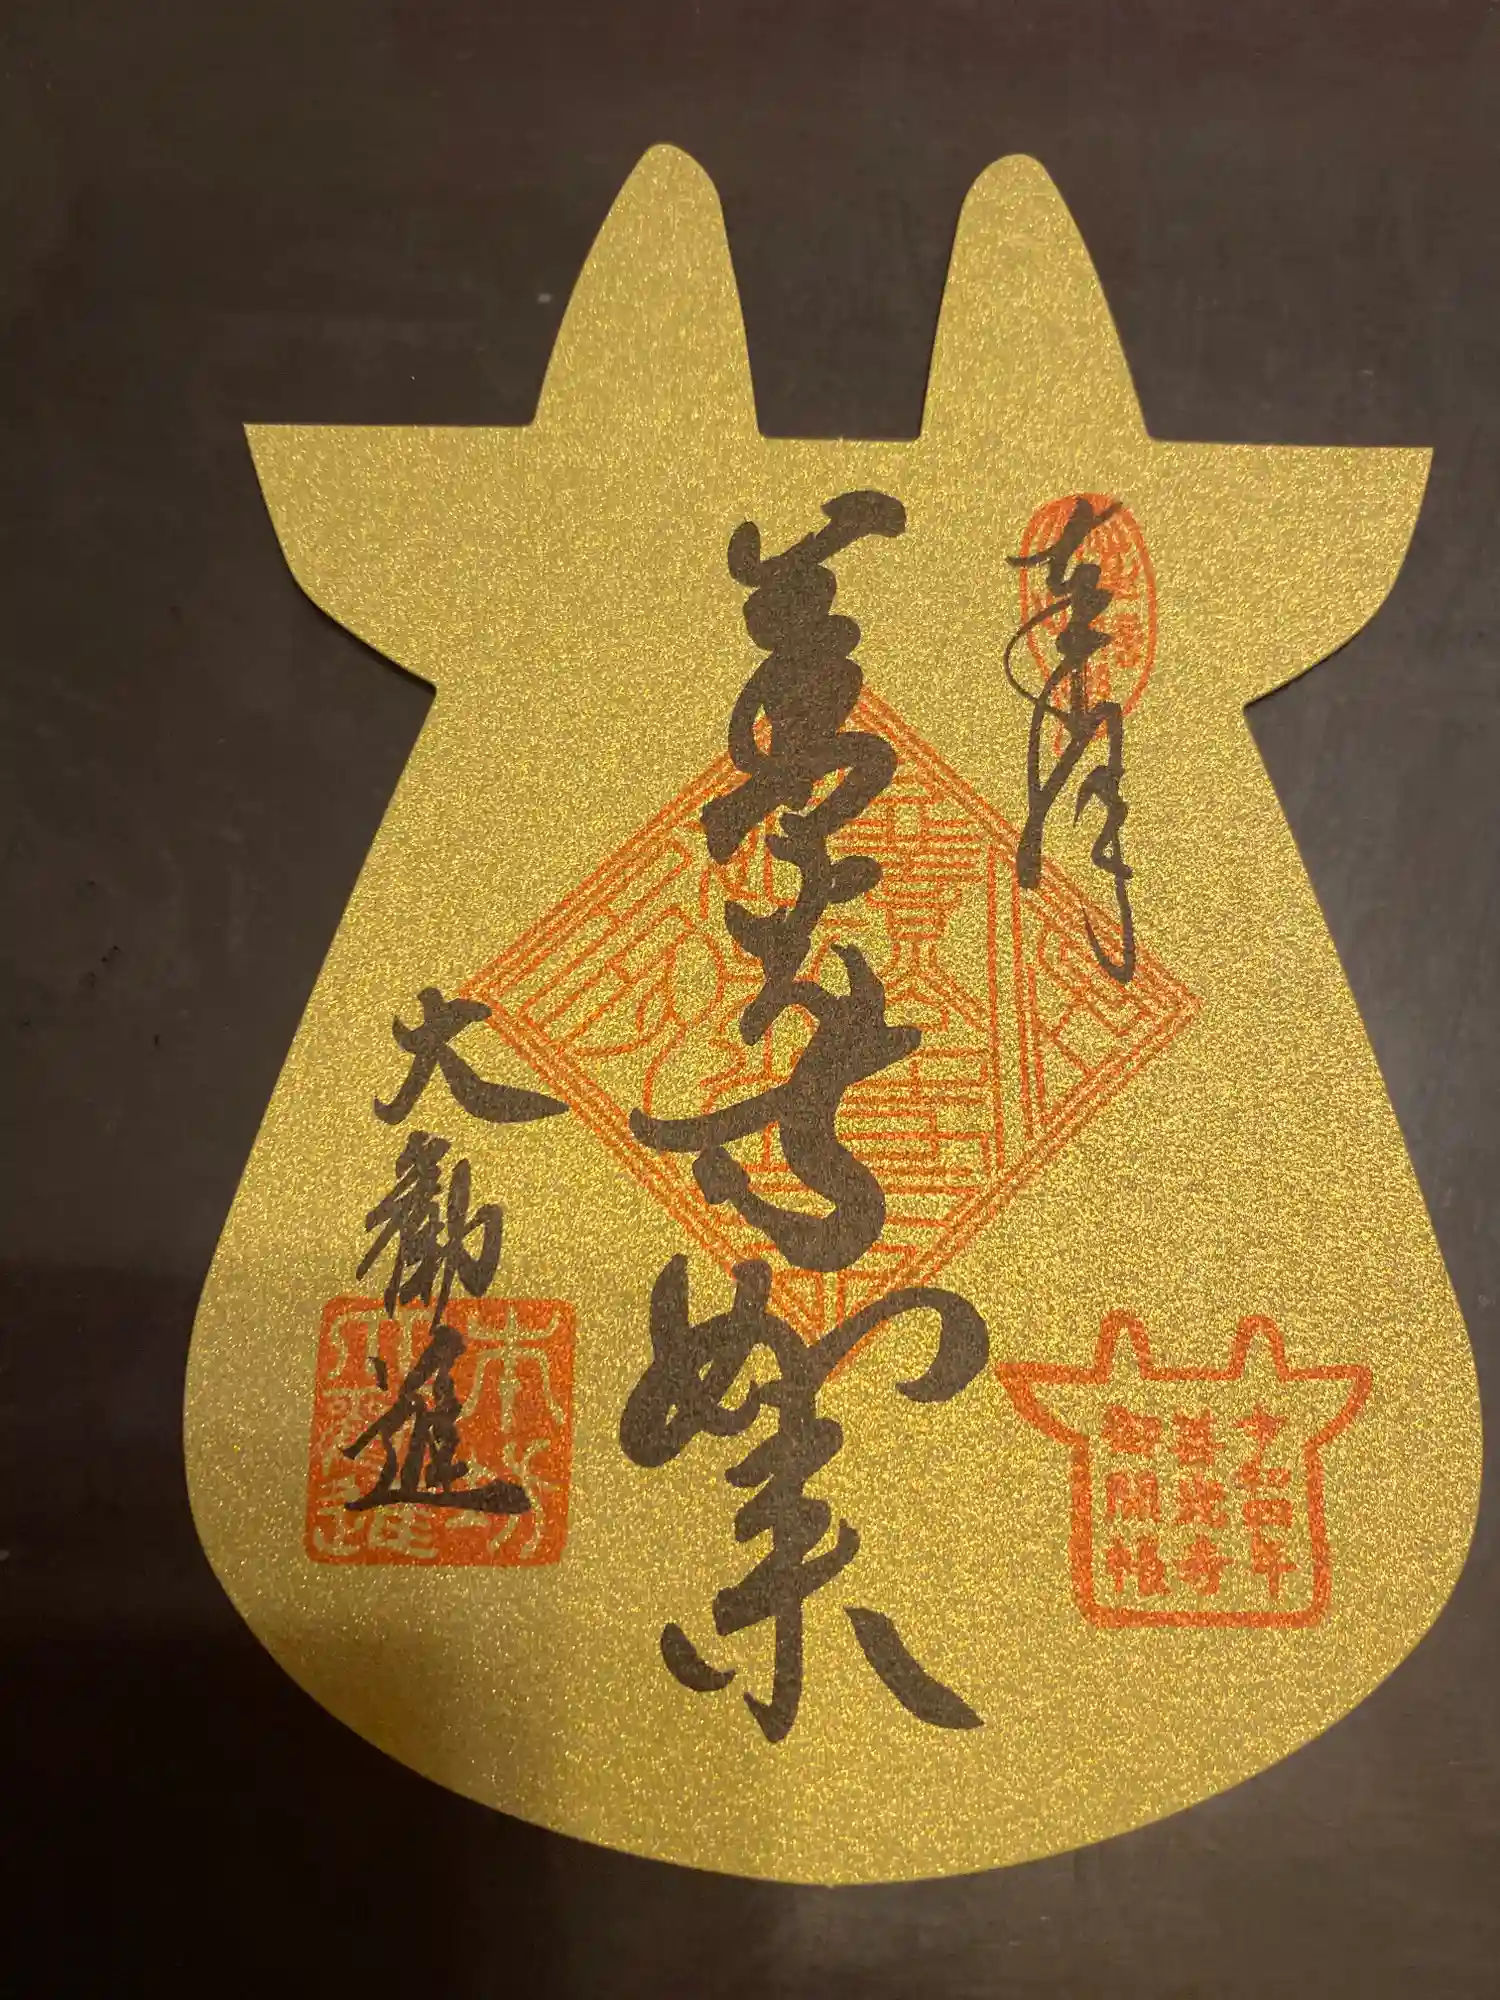 奉拝
善光寺如来
大勸進
令和四年
善光寺
御開帳